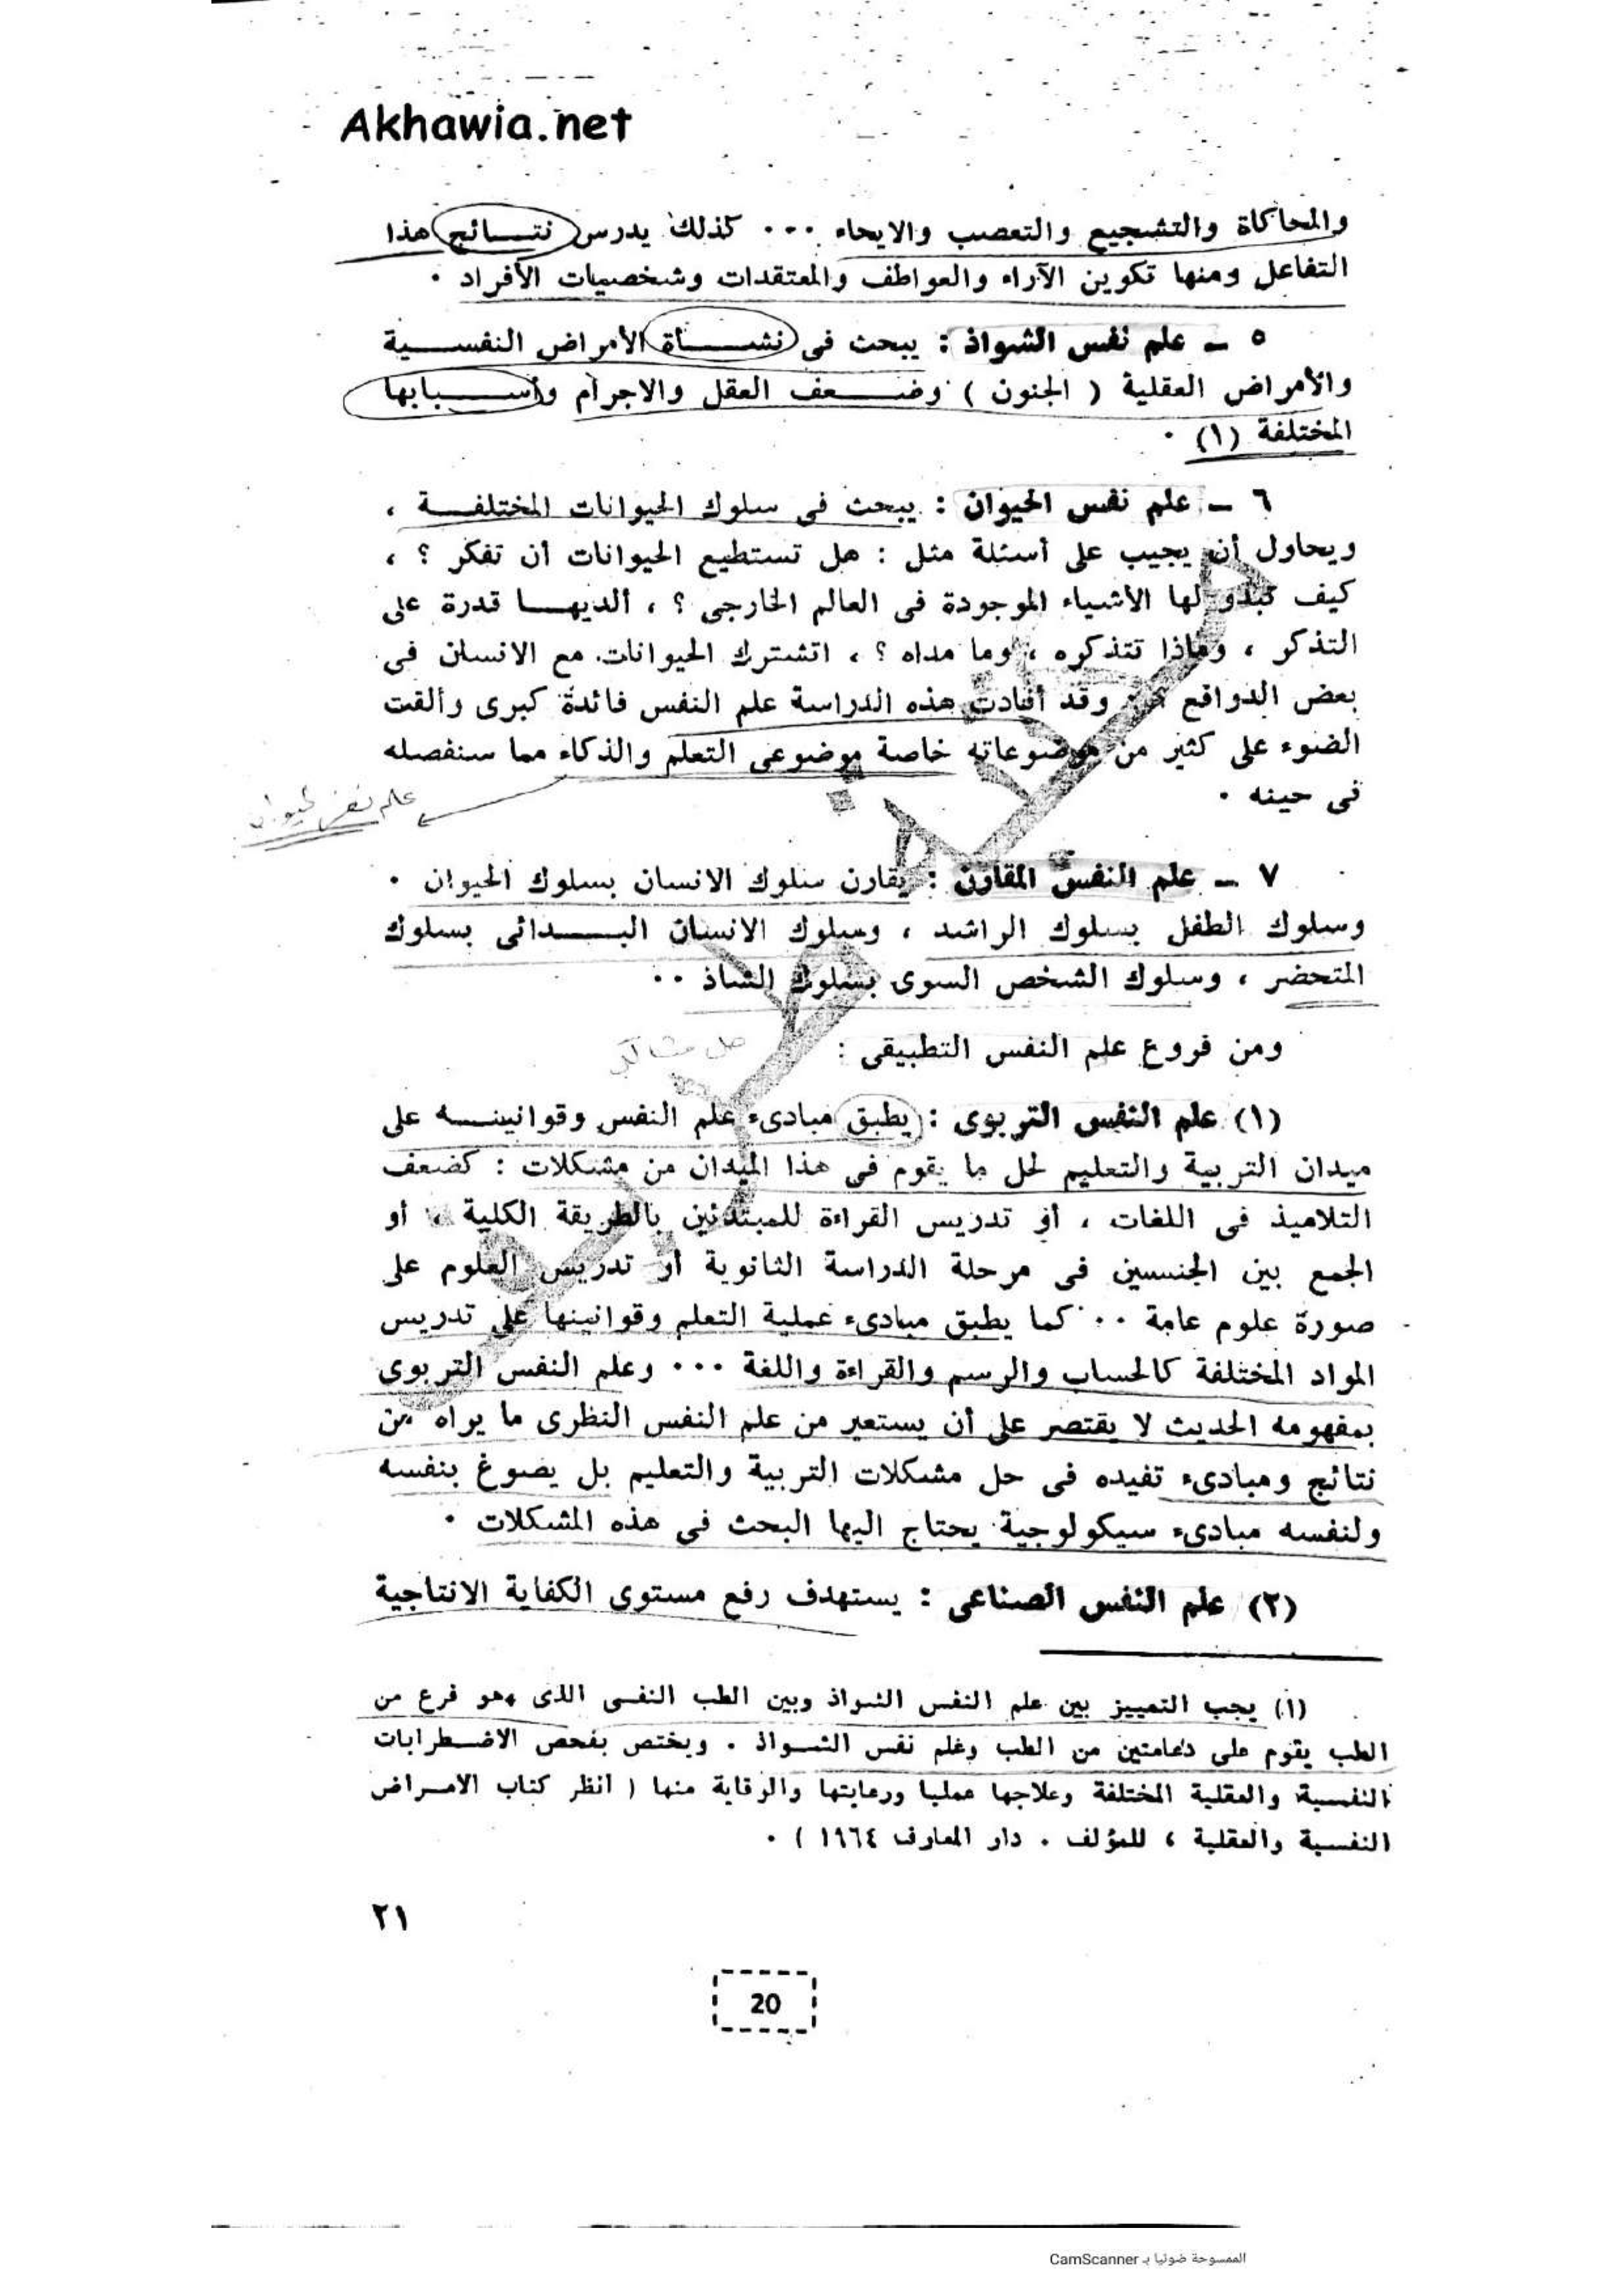 Akhawia.net
والمحاكاة والتشجيع والتعصب والايحاء ... كذلك يدرس نتائج هذا
التفاعل ومنها تكوين الآراء والعواطف والمعتقدات وشخصيات الأفراد .
٥ - علم نفس الشواذ : يبحث فى نشأة الأمراض النفسية
والأمراض العقلية ( الجنون ) وضعف العقل والاجرام وأسبابها
المختلفة (١) .
٦ - علم نفس الحيوان : يبحث فى سلوك الحيوانات المختلفة ،
ويحاول أن يجيب على أسئلة مثل : هل تستطيع الحيوانات أن تفكر ؟ ،
كيف تبدو لها الأشياء الموجودة فى العالم الخارجى ؟ ، ألديها قدرة على
التذكر ، وماذا تتذكره ، وما مداه ؟ ، اتشترك الحيوانات مع الانسان فى
بعض الدوافع ؟ .. وقد أفادت هذه الدراسة علم النفس فائدة كبرى وألقت
الضوء على كثير من موضوعاته خاصة موضوعى التعلم والذكاء مما سنفصله
فى حينه .
علم نفس الحيوان
٧ - علم النفس المقارن : يقارن سلوك الانسان بسلوك الحيوان .
وسلوك الطفل بسلوك الراشد ، وسلوك الانسان البدائى بسلوك
المتحضر ، وسلوك الشخص السوى بسلوك الشاذ ..
ومن فروع علم النفس التطبيقى :
حل مشاكل
(١) علم النفس التربوى : يطبق مبادىء علم النفس وقوانينه على
ميدان التربية والتعليم لحل ما يقوم فى هذا الميدان من مشكلات : كضعف
التلاميذ فى اللغات ، أو تدريس القراءة للمبتدئين بالطريقة الكلية ، أو
الجمع بين الجنسين فى مرحلة الدراسة الثانوية أو تدريس العلوم على
صورة علوم عامة .. كما يطبق مبادىء عملية التعلم وقوانينها على تدريس
المواد المختلفة كالحساب والرسم والقراءة واللغة ... وعلم النفس التربوى
بمفهومه الحديث لا يقتصر على أن يستعير من علم النفس النظرى ما يراه من
نتائج ومبادىء تفيده فى حل مشكلات التربية والتعليم بل يصوغ بنفسه
ولنفسه مبادىء سيكولوجية يحتاج اليها البحث فى هذه المشكلات .
(٢) علم النفس الصناعى : يستهدف رفع مستوى الكفاية الانتاجية
(١) يجب التمييز بين علم النفس الشواذ وبين الطب النفسى الذى هو فرع من
الطب يقوم على دعامتين من الطب وعلم نفس الشواذ . ويختص بفحص الاضطرابات
النفسية والعقلية المختلفة وعلاجها عمليا ورعايتها والوقاية منها ( انظر كتاب الامراض
النفسية والعقلية ، للمؤلف . دار المعارف ١٩٦٤ ) .
٢١
20
الممسوحة ضوئيا بـ CamScanner